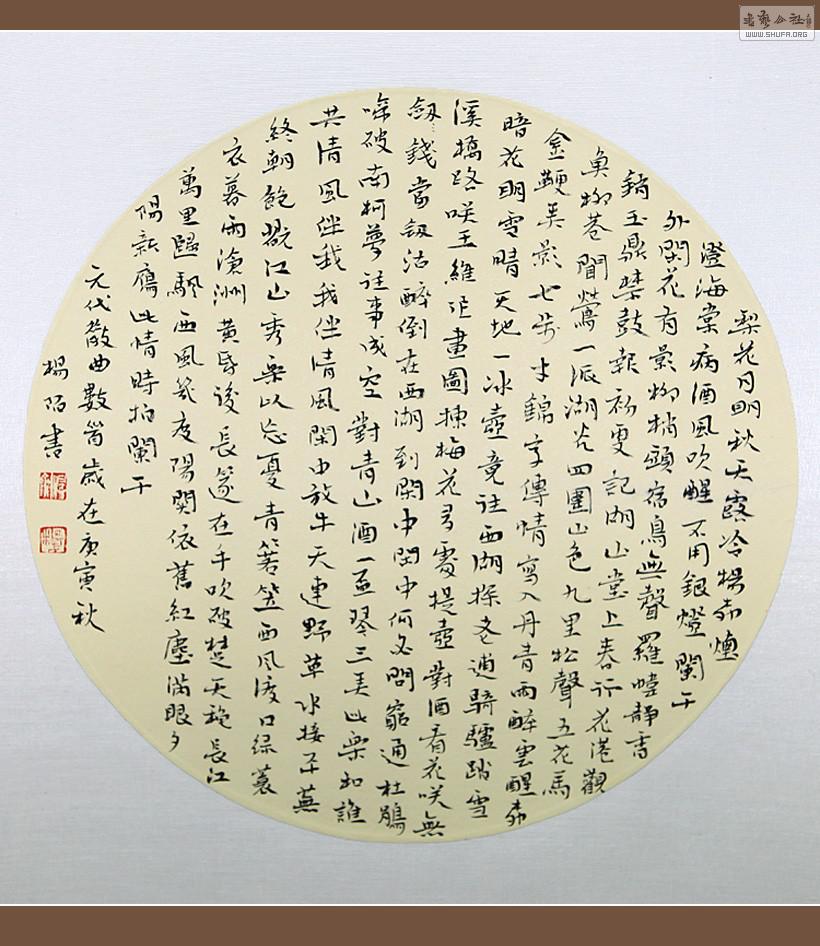 梨花月明秋天露冷楊柳煙
澄海棠病酒風吹醒不用銀燈闌干
外閑花有影柳梢頭宿鳥無聲羅幃靜香
銷玉鼎禁鼓報初更記湖山堂上春行花港觀
魚柳巷聞鶯一派湖光四圍山色九里松聲五花馬
金鞭弄影七步才錦字傳情寫入丹青雨醉雲醒柳
暗花明雪晴天地一冰壺竟往西湖探老逋騎驢踏雪
溪橋路咲王維作畫圖揀梅花多處提壺對酒看花咲無
錢當劔沽醉倒在西湖到閑中閑中何必問窮通杜鵑
啼破南柯夢往事成空對青山酒一盃琴三弄此樂和誰
共清風伴我我伴清風閑中放牛天連野草水接平蕪
終朝飽翫江山秀樂以忘憂青篛笠西風渡口綠蓑
衣暮雨滄洲黃昏後長笛在手吹破楚天秋長江
萬里歸帆西風幾度陽關依舊紅塵滿眼夕
陽新鴈此情時拍闌干
元代散曲數首歲在庚寅秋
楊陌書
WWW.SHUFA.ORG